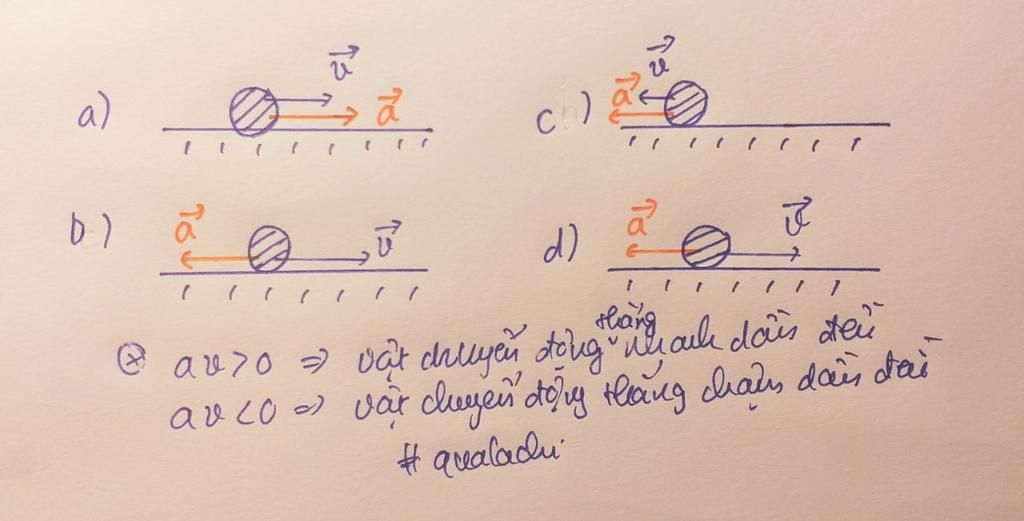 a) v⃗ a⃗
c) v⃗ a⃗
b) a⃗ v⃗
d) a⃗ v⃗
⊛ av>0 => vật chuyển động thẳng nhanh dần đều
av<0 => vật chuyển động thẳng chậm dần đều